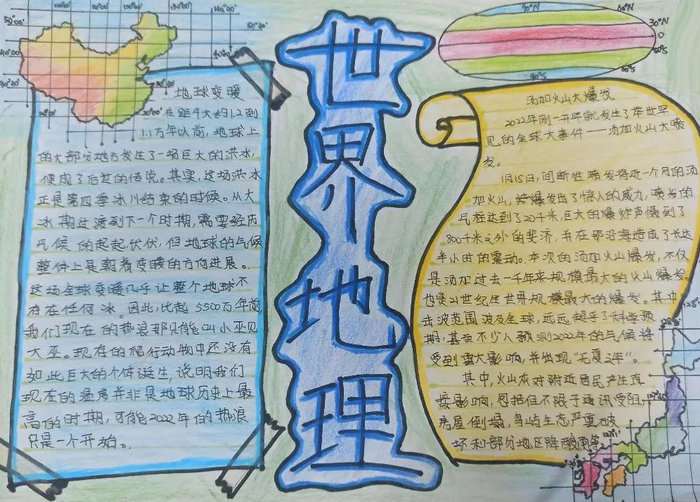 世界地理
地球变暖
在距今大约1.2到
1.1万年以前,地球上
的大部分地方发生了一场巨大的洪水,
便成了后世的传说。其实,这场洪水
正是第四季冰川结束的时候。从大
冰期过渡到下一个时期,需要经历
气候的起起伏伏,但地球的气候
整体上是朝着变暖的方向进展。
这场全球变暖几乎让整个地球不
存在任何冰。因此,比起5500万年前
我们现在的热浪那只能叫小巫见
大巫。现在的爬行动物中还没有
如此巨大的个体诞生,说明我们
现在的温度并非是地球历史上最
高的时期,可能2022年的热浪
只是一个开始。
汤加火山大爆发
2022年刚一开年就发生了举世罕
见的全球大事件——汤加火山大喷
发。
1月15日,间断性喷发将近一个月的汤
加火山,终爆发出了惊人的威力,喷发的
气柱达到了20千米,巨大的爆炸声传到了
800千米之外的斐济,并在那沿海造成了长达
半小时的震动。本次的汤加火山爆发,不仅
是汤加过去一千年来规模最大的火山爆发
也是21世纪全世界规模最大的爆发。其冲
击波范围波及全球,远远超乎了科学预
期,甚至不少人预测2022年的气候将
受到重大影响,并出现“无夏之年”。
其中,火山灰对附近居民产生直
接影响,包括但不限于通讯受阻,
房屋倒塌,岛屿生态严重破
坏和部分地区降酸雨等